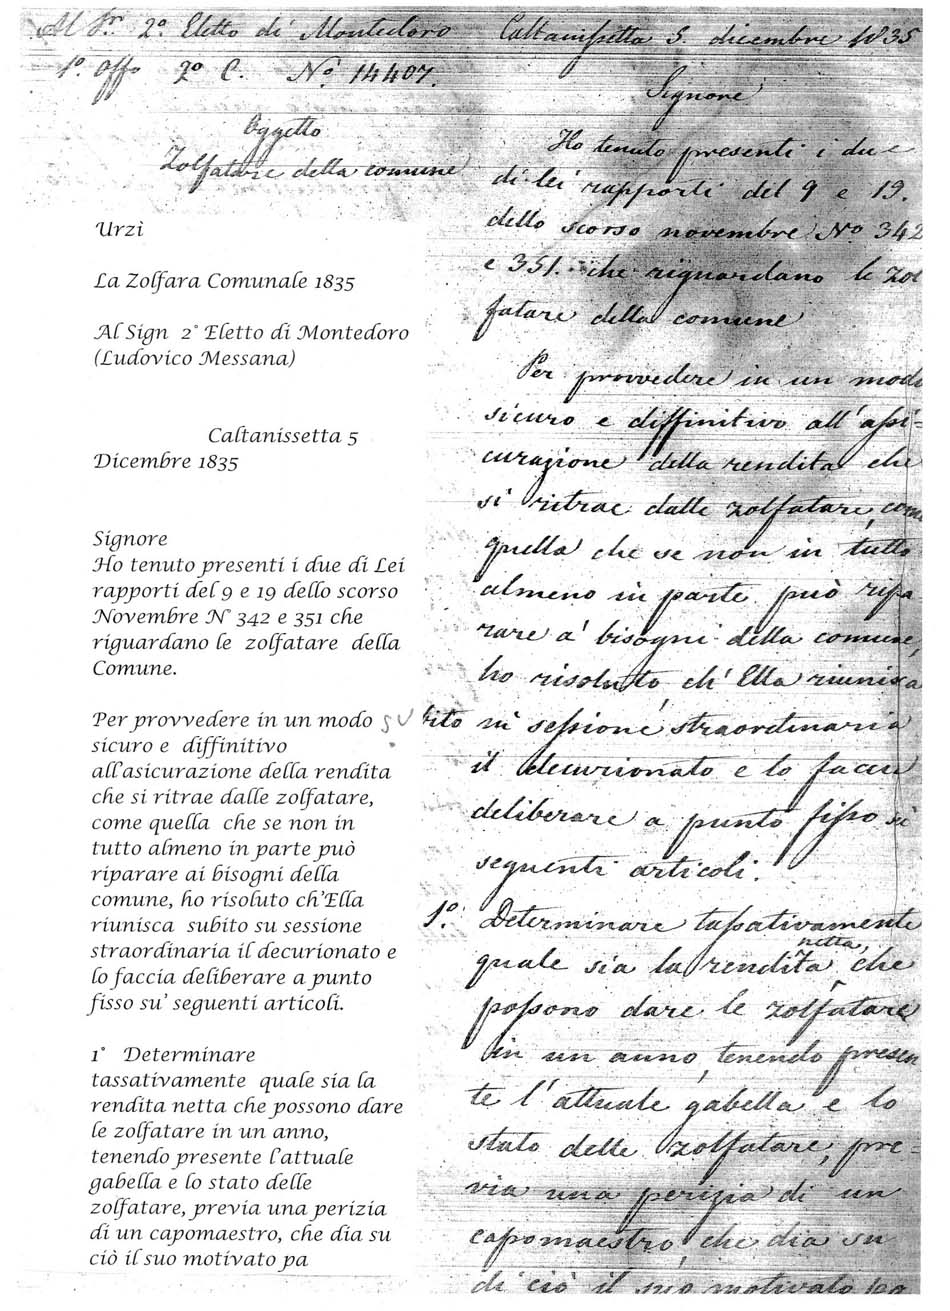 Al Sr. 2º. Eletto di Montedoro
1º. Offo 2º C. Nº. 14407.
Oggetto
Zolfatare della comune
Urzì
La Zolfara Comunale 1835
Al Sign 2° Eletto di Montedoro
(Ludovico Messana)
Caltanissetta 5
Dicembre 1835
Signore
Ho tenuto presenti i due di Lei
rapporti del 9 e 19 dello scorso
Novembre N° 342 e 351 che
riguardano le zolfatare della
Comune.
Per provvedere in un modo
sicuro e diffinitivo
all'asicurazione della rendita
che si ritrae dalle zolfatare,
come quella che se non in
tutto almeno in parte può
riparare ai bisogni della
comune, ho risoluto ch'Ella
riunisca subito su sessione
straordinaria il decurionato e
lo faccia deliberare a punto
fisso su' seguenti articoli.
1° Determinare
tassativamente quale sia la
rendita netta che possono dare
le zolfatare in un anno,
tenendo presente l'attuale
gabella e lo stato delle
zolfatare, previa una perizia
di un capomaestro, che dia su
ciò il suo motivato pa
Caltanissetta 5 dicembre 1835
Signore
Ho tenuto presenti i due
di lei rapporti del 9 e 19.
dello scorso novembre Nº 342
e 351. che riguardano le zol
fatare della comune
Per provvedere in un modo
sicuro e diffinitivo all'assi=
curazione della rendita che
si ritrae dalle zolfatare, come
quella che se non in tutto
almeno in parte può ripa
rare a' bisogni della comune,
ho risoluto ch'Ella riunisca
subito in sessione straordinaria
il decurionato e lo faccia
deliberare a punto fisso si
seguenti articoli.
1º. Determinare tassativamente
quale sia la rendita netta, che
possono dare le zolfatare
in un anno, tenendo presen
te l'attuale gabella e lo
stato delle zolfatare, pre=
via una perizia di un
capomaestro, che dia su
di ciò il suo motivato pa